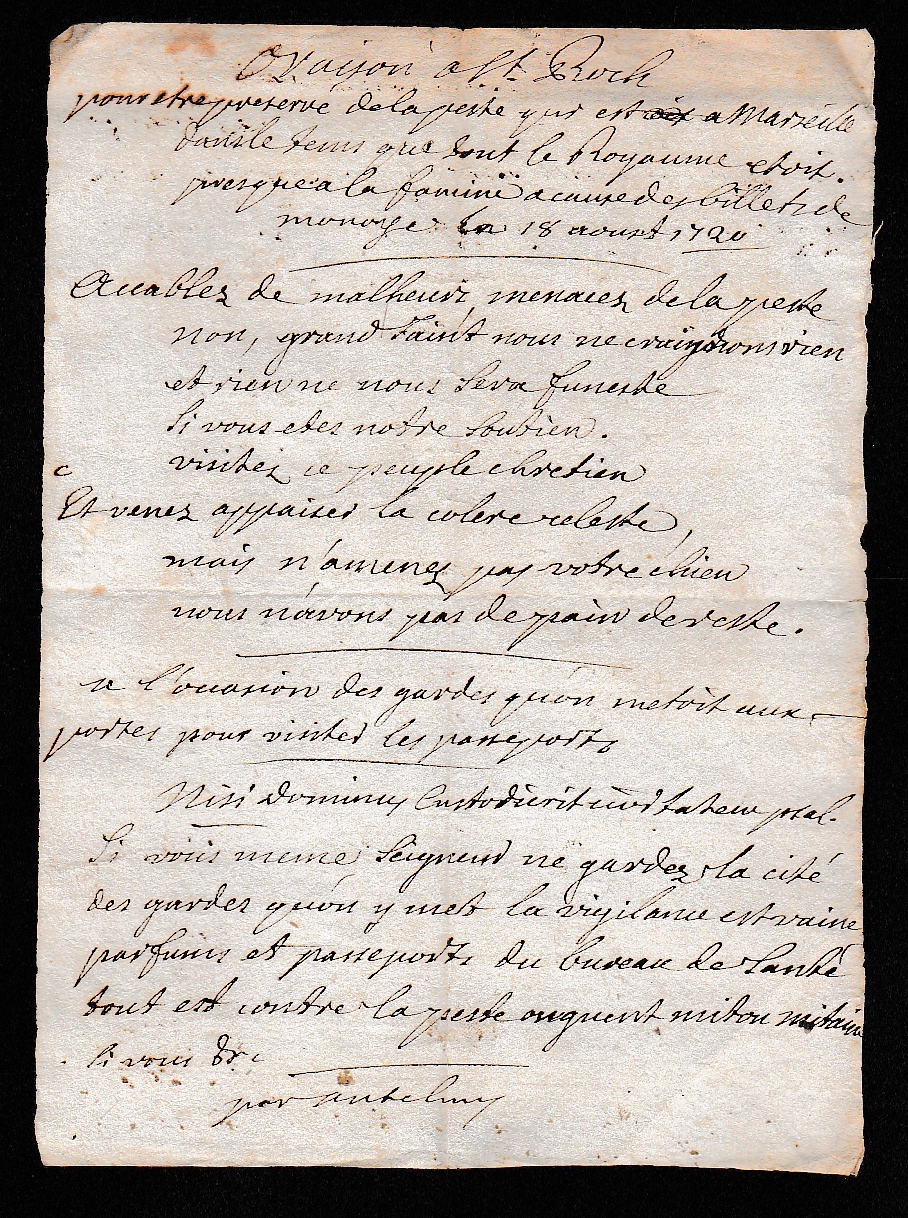 Oraison a St Roch
pour etre preservé de la peste qui est a Marseille
dans le tems que tout le Royaume etoit
presque a la famine a cause des billets de
monoye le 18 aoust 1720
Accablez de malheurs, menacez de la peste
non, grand Saint nous ne craignons rien
et rien ne nous sera funeste
si vous etes notre soutien.
visitez ce peuple chretien
Et venez appaiser la colere celeste,
mais n'amenez pas votre chien
nous n'avons pas de pain de reste.
a l'occasion des gardes qu'on metoit aux
portes pour visiter les passeports
Nisi dominus Custodierit civitatem psal.
Si vous meme Seigneur ne gardez la cité
des gardes qu'on y met la vigilance est vaine
parfums et passeports du bureau de Santé
tout est contre la peste onguent miton mitaine
si vous &c
par antelmy